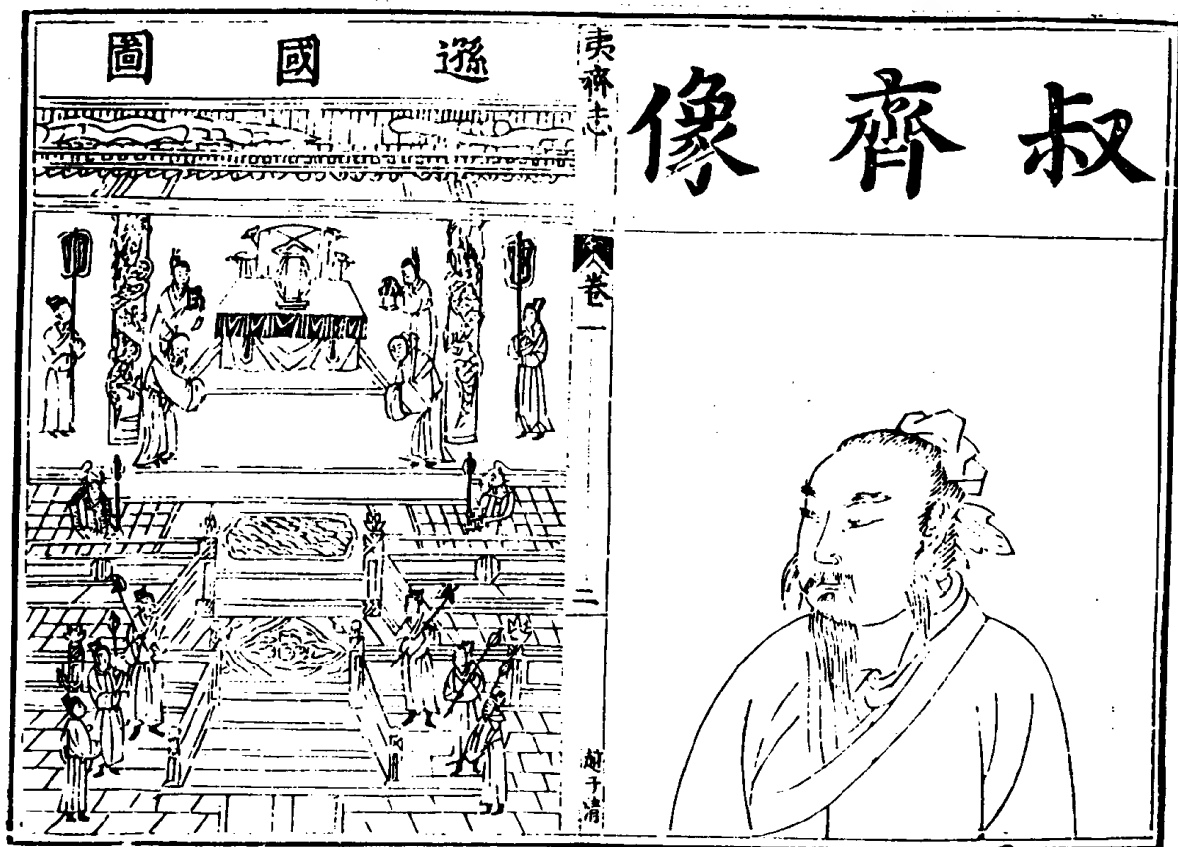 叔齊像
夷齊志
卷一
二
子清
遜國圖